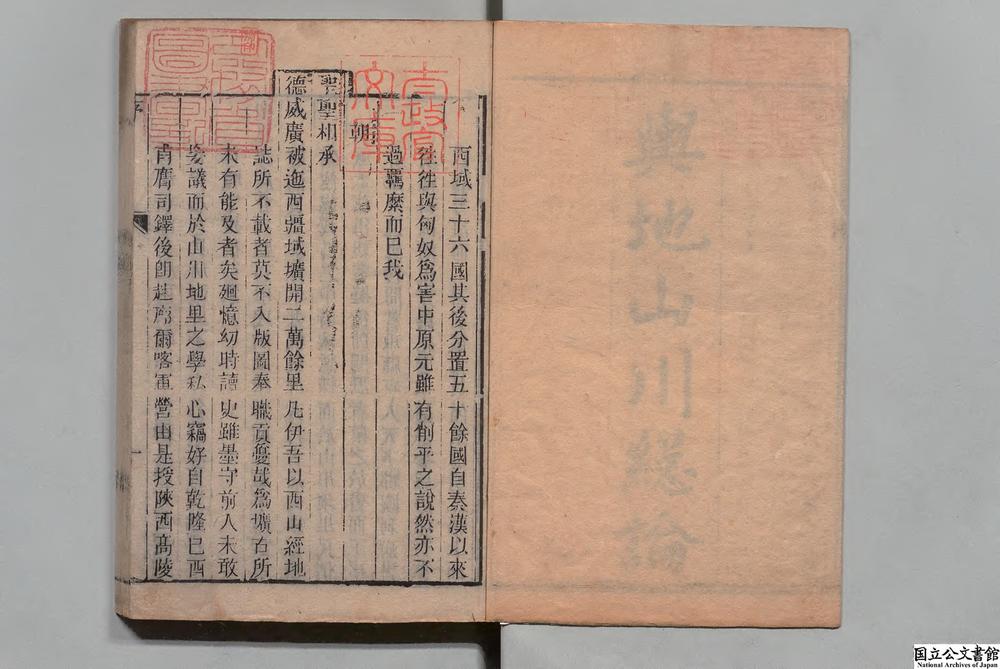 輿地山川總論
西域三十六國其後分置五十餘國自秦漢以來
徃徃與匈奴爲害中原元雖有削平之說然亦不
過羈縻而已我
朝
聖聖相承
德威廣被迤西疆域壙開二萬餘里凡伊吾以西山經地
誌所不載者莫不入版圖奉職貢敻哉爲壙古所
未有能及者矣廻憶幼時讀史雖墨守前人未敢
妄議而於山川地里之學私心竊好自乾隆巳酉
甫膺司鐸後卽赴喀爾喀軍營由是授陝西高陵
序
一
国立公文書館
National Archives of Japan